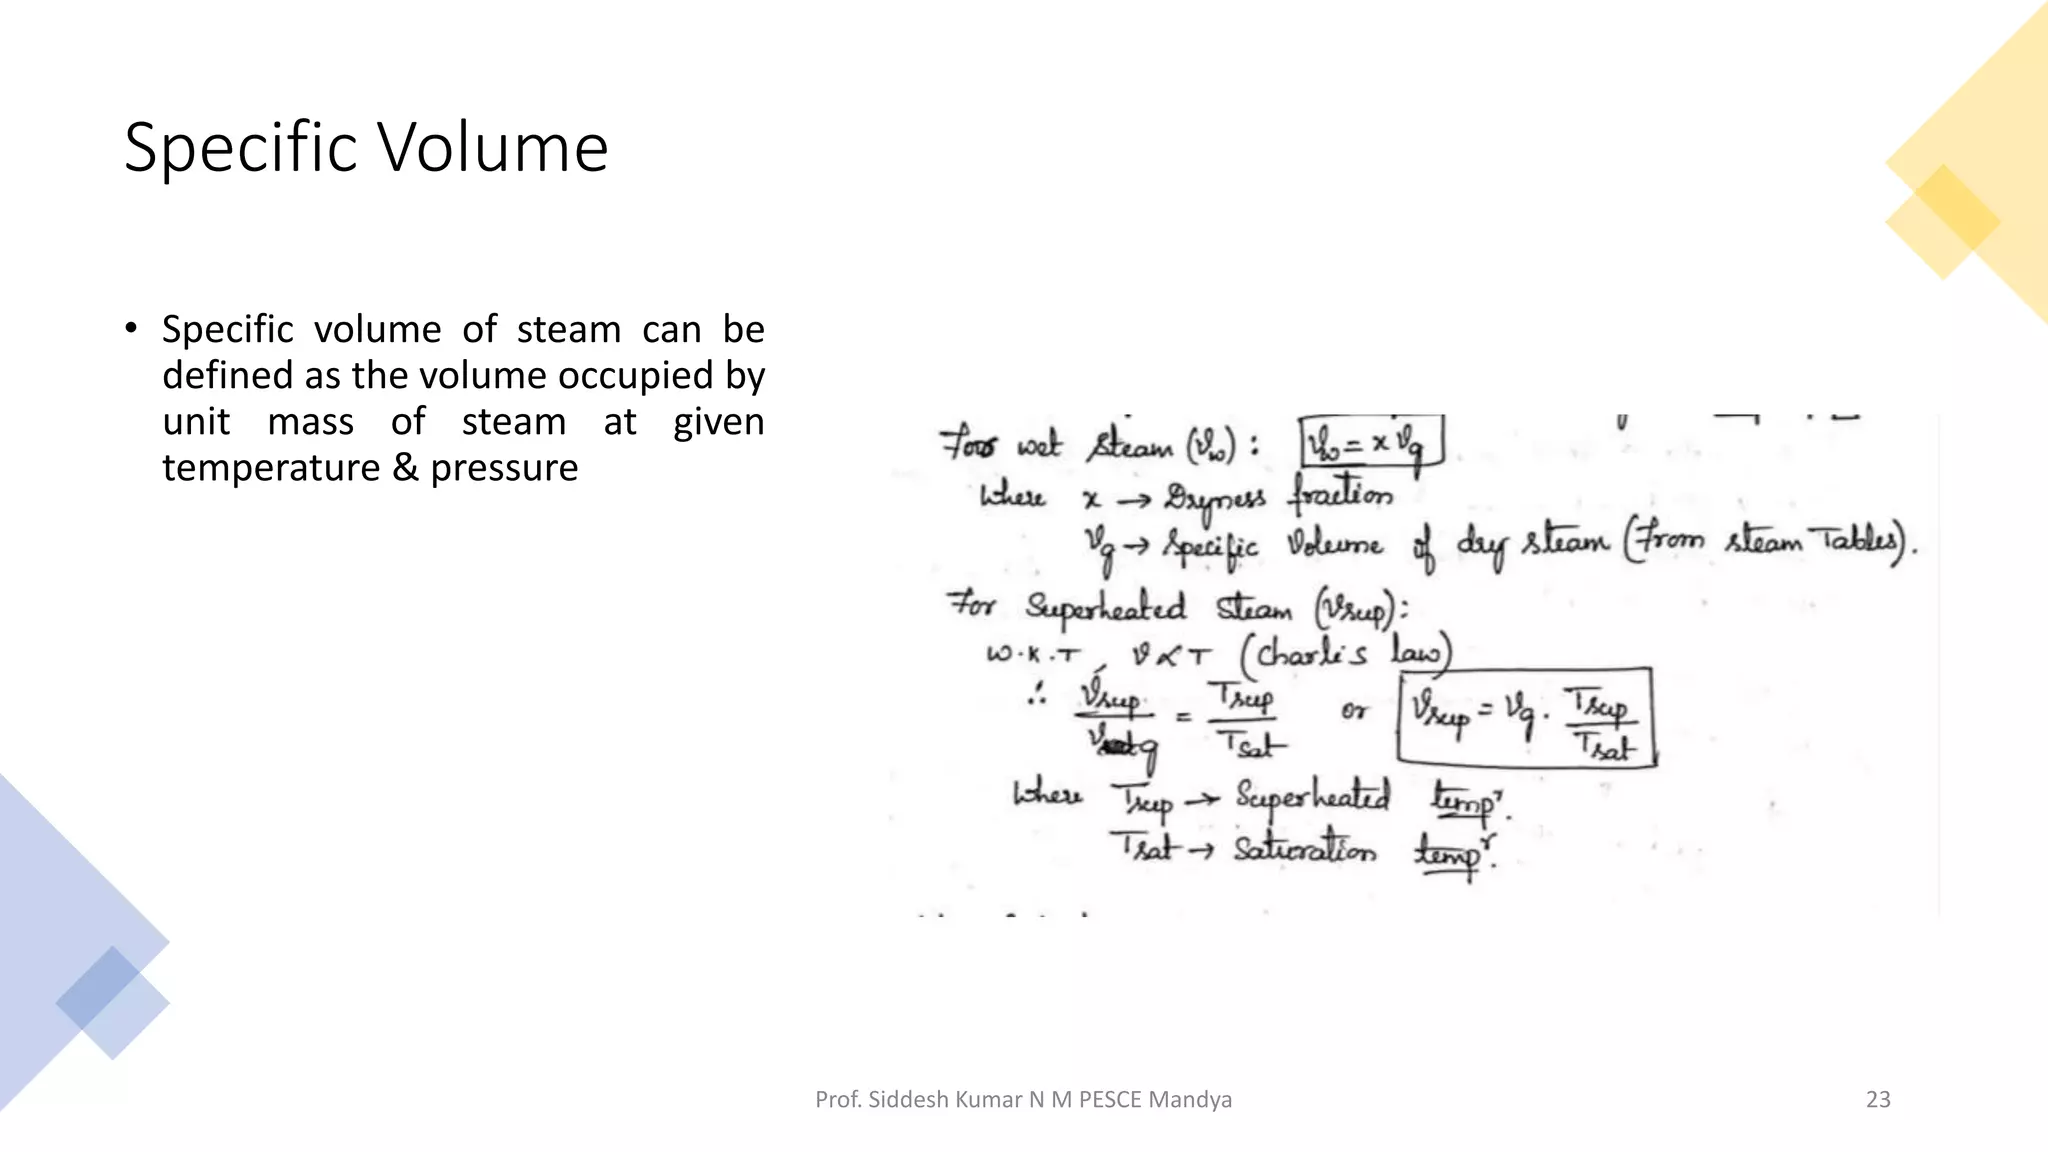 Specific Volume
• Specific volume of steam can be
defined as the volume occupied by
unit mass of steam at given
temperature & pressure
For wet steam (Vw) : Vw = x Vg
where x → Dryness fraction
Vg → Specific Volume of dry steam (From steam Tables).
For Superheated Steam (Vsup):
W.K.T, V ∝ T (Charle's law)
∴ Vsup/Vg = Tsup/Tsat or Vsup = Vg . Tsup/Tsat
where Tsup → Superheated tempr.
Tsat → Saturation tempr.
Prof. Siddesh Kumar N M PESCE Mandya
23